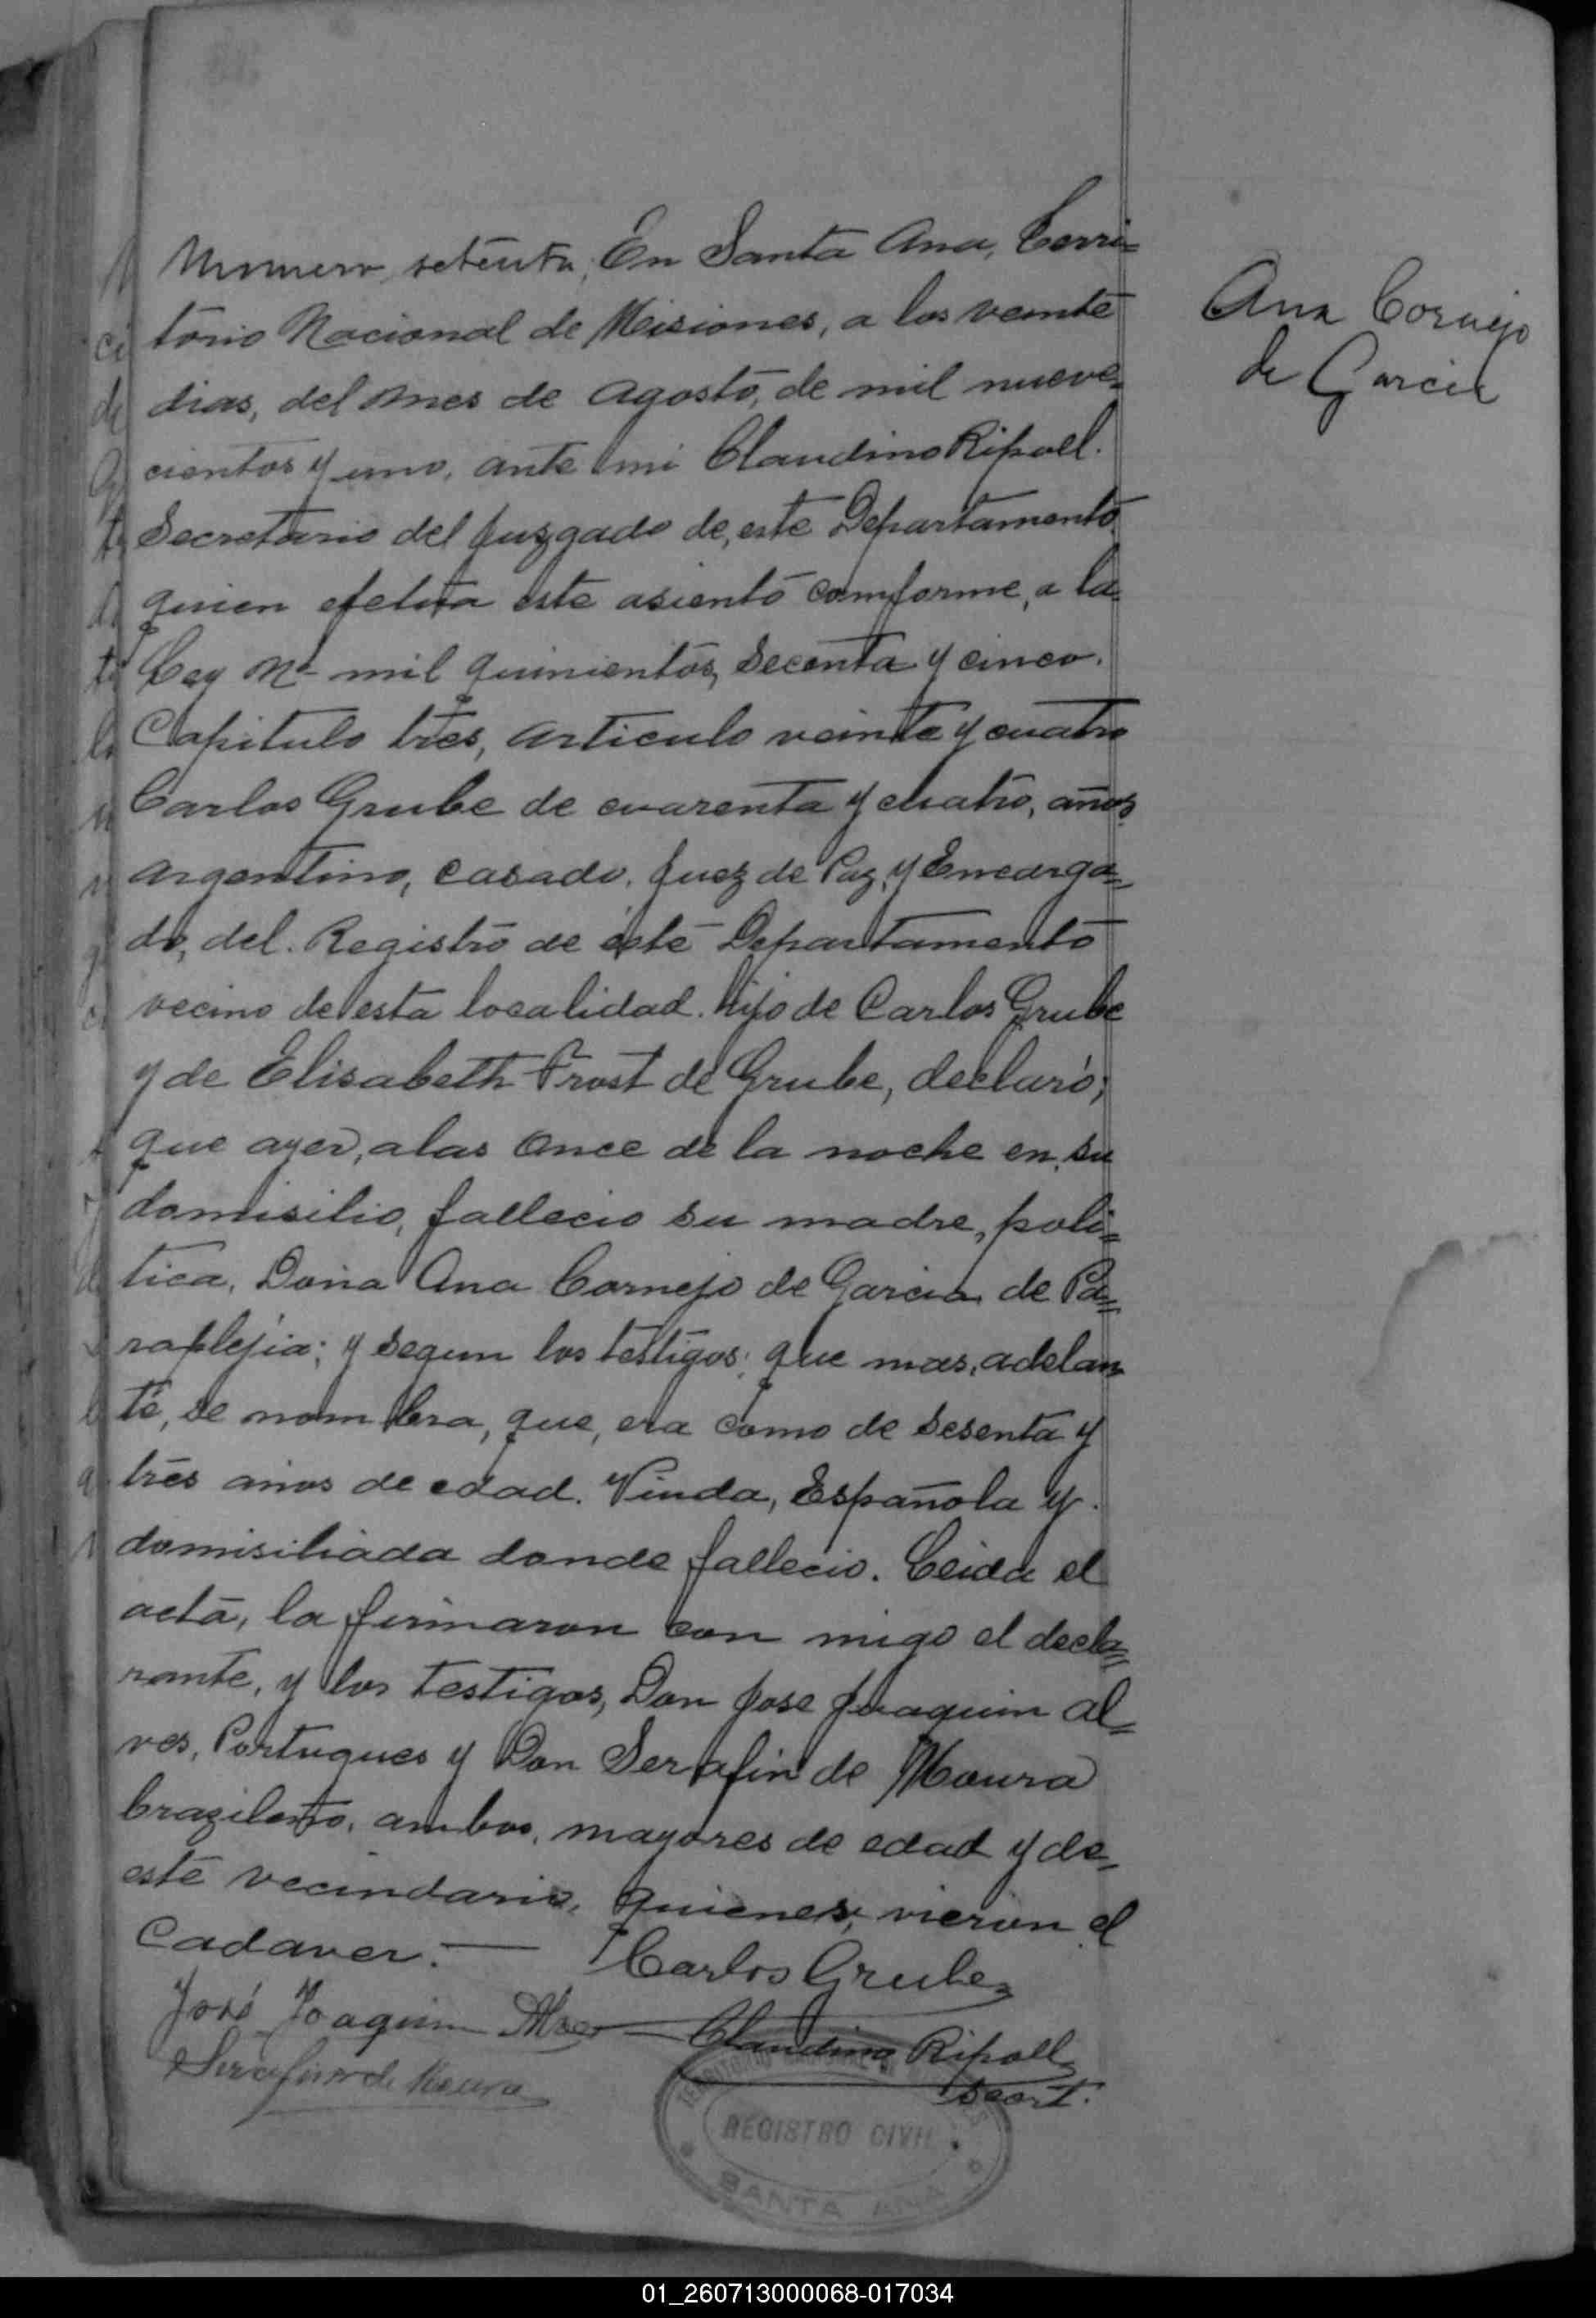 Numero setenta; En Santa Ana, Terri=
torio Nacional de Misiones, a los veinte
dias, del mes de Agosto, de mil nueve=
cientos y uno, ante mi Claudino Ripoll.
Secretario del Juzgado de, este Departamento,
quien efetua este asiento comforme, a la
Ley Nº mil quinientos, Secenta y cinco.
Capitulo tres, articulo veinte y cuatro
Carlos Grube de cuarenta y cuatro, años,
argentino, casado. Juez de Paz, y Encarga=
do, del. Registro de este Departamento
vecino de esta localidad. hijo de Carlos Grube
y de Elisabeth Frost de Grube, declaró;
que ayer, a las once de la noche en, su
domisilio, fallecio su madre, poli=
tica, Doña Ana Cornejo de Garcia, de Pa=
raplejia; y segun los testigos; que mas, adelan
te, se nombra, que, era como de sesenta y
tres años de edad. Viuda, Española y.
domisiliada donde fallecio. Leida el
acta, la firmaron con migo el decla=
rante, y los testigos, Don Jose Joaquin Al=
ves, Portugues y Don Serafin de Moura
brazileño, ambos, mayores de edad y de,
este vecindario, quienes, vieron el
Cadaver. —
Carlos Grube
José Joaquim Alves
Claudino Ripoll
Secrt.
Serafim de Moura
REGISTRO CIVIL
SANTA ANA
Ana Cornejo
de Garcia
01_260713000068-017034